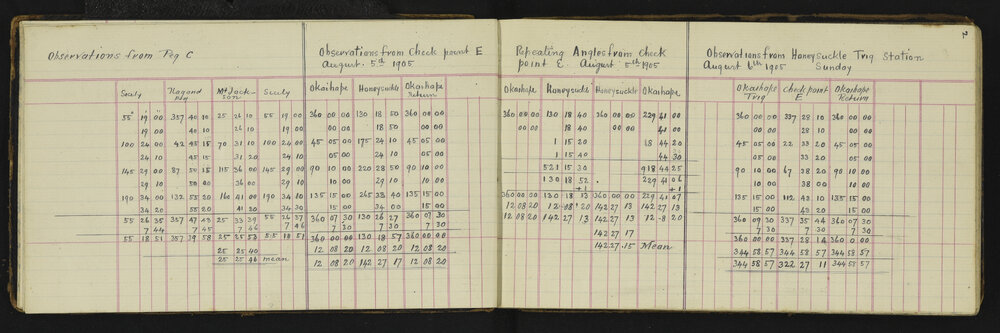 2
Observations from Peg C
Scaly Hagand Peg Mt Jackson Scaly
55° 19 00 357 40 10 25 26 10 55 19 00
19 00 40 10 26 10 19 00
100 24 00 42 45 15 70 31 10 100 24 00
24 10 45 15 31 20 24 10
145 29 00 115 36 00 145 29 00
29 10 50 00 36 00 29 10
190 34 00 132 55 20 160 41 00 190 34 10
34 20 55 20 41 20 34 30
55 26 35 25 33 39 55 26 37
7 44 7 45 7 46 7 46
55 18 51 357 39 58 25 25 53 55 18 51
25 25 40
25 25 46 mean
Observations from Check point E
August 5th 1905
Okaihape Honeysuckle Okaihape Return
360 00 00 130 18 50 360 00 00
00 00 18 50 00 00
45 05 00 175 24 10 45 05 00
05 00 24 10 05 00
90 10 00 220 28 50 90 10 00
10 00 29 10 10 00
135 15 00 265 33 40 135 15 00
15 00 34 00 15 00
360 07 30 130 26 27 360 07 30
7 30 7 30 7 30
360 00 00 130 18 57 360 00 00
12 08 20 12 08 20 12 08 20
12 08 20 142 27 17 12 08 20
Repeating Angles from Check
point E. August 5th 1905
Okaihape Honeysuckle Honeysuckle Okaihape
360 00 00 130 18 40 360 00 00 229 41 00
00 00 18 40 00 00 41 00
1 15 20 18 44 20
1 15 40 44 30
521 15 30 918 44 25
130 18 52 229 41 06
+1 +1
360 00 00 130 18 53 360 00 00 229 41 07
12 08 20 12 08 20 142 27 13 142 27 13
12 08 20 142 27 13 142 27 13 12 8 20
142 27 17
142 27 15 Mean
Observations from Honeysuckle Trig Station
August 6th 1905 Sunday
Okaihape Trig Check point E Okaihape Return
360 00 00 337 28 10 360 00 00
00 00 28 10 00 00
45 05 00 22 33 20 45 05 00
05 00 33 20 05 00
90 10 00 67 38 20 90 10 00
10 00 38 00 10 00
135 15 00 112 43 10 135 15 00
15 00 43 20 15 00
360 09 30 337 35 44 360 07 30
7 30 7 30 7 30
360 00 00 337 28 14 360 0 00
344 58 57 344 58 57 344 58 57
344 58 57 322 27 11 344 58 57